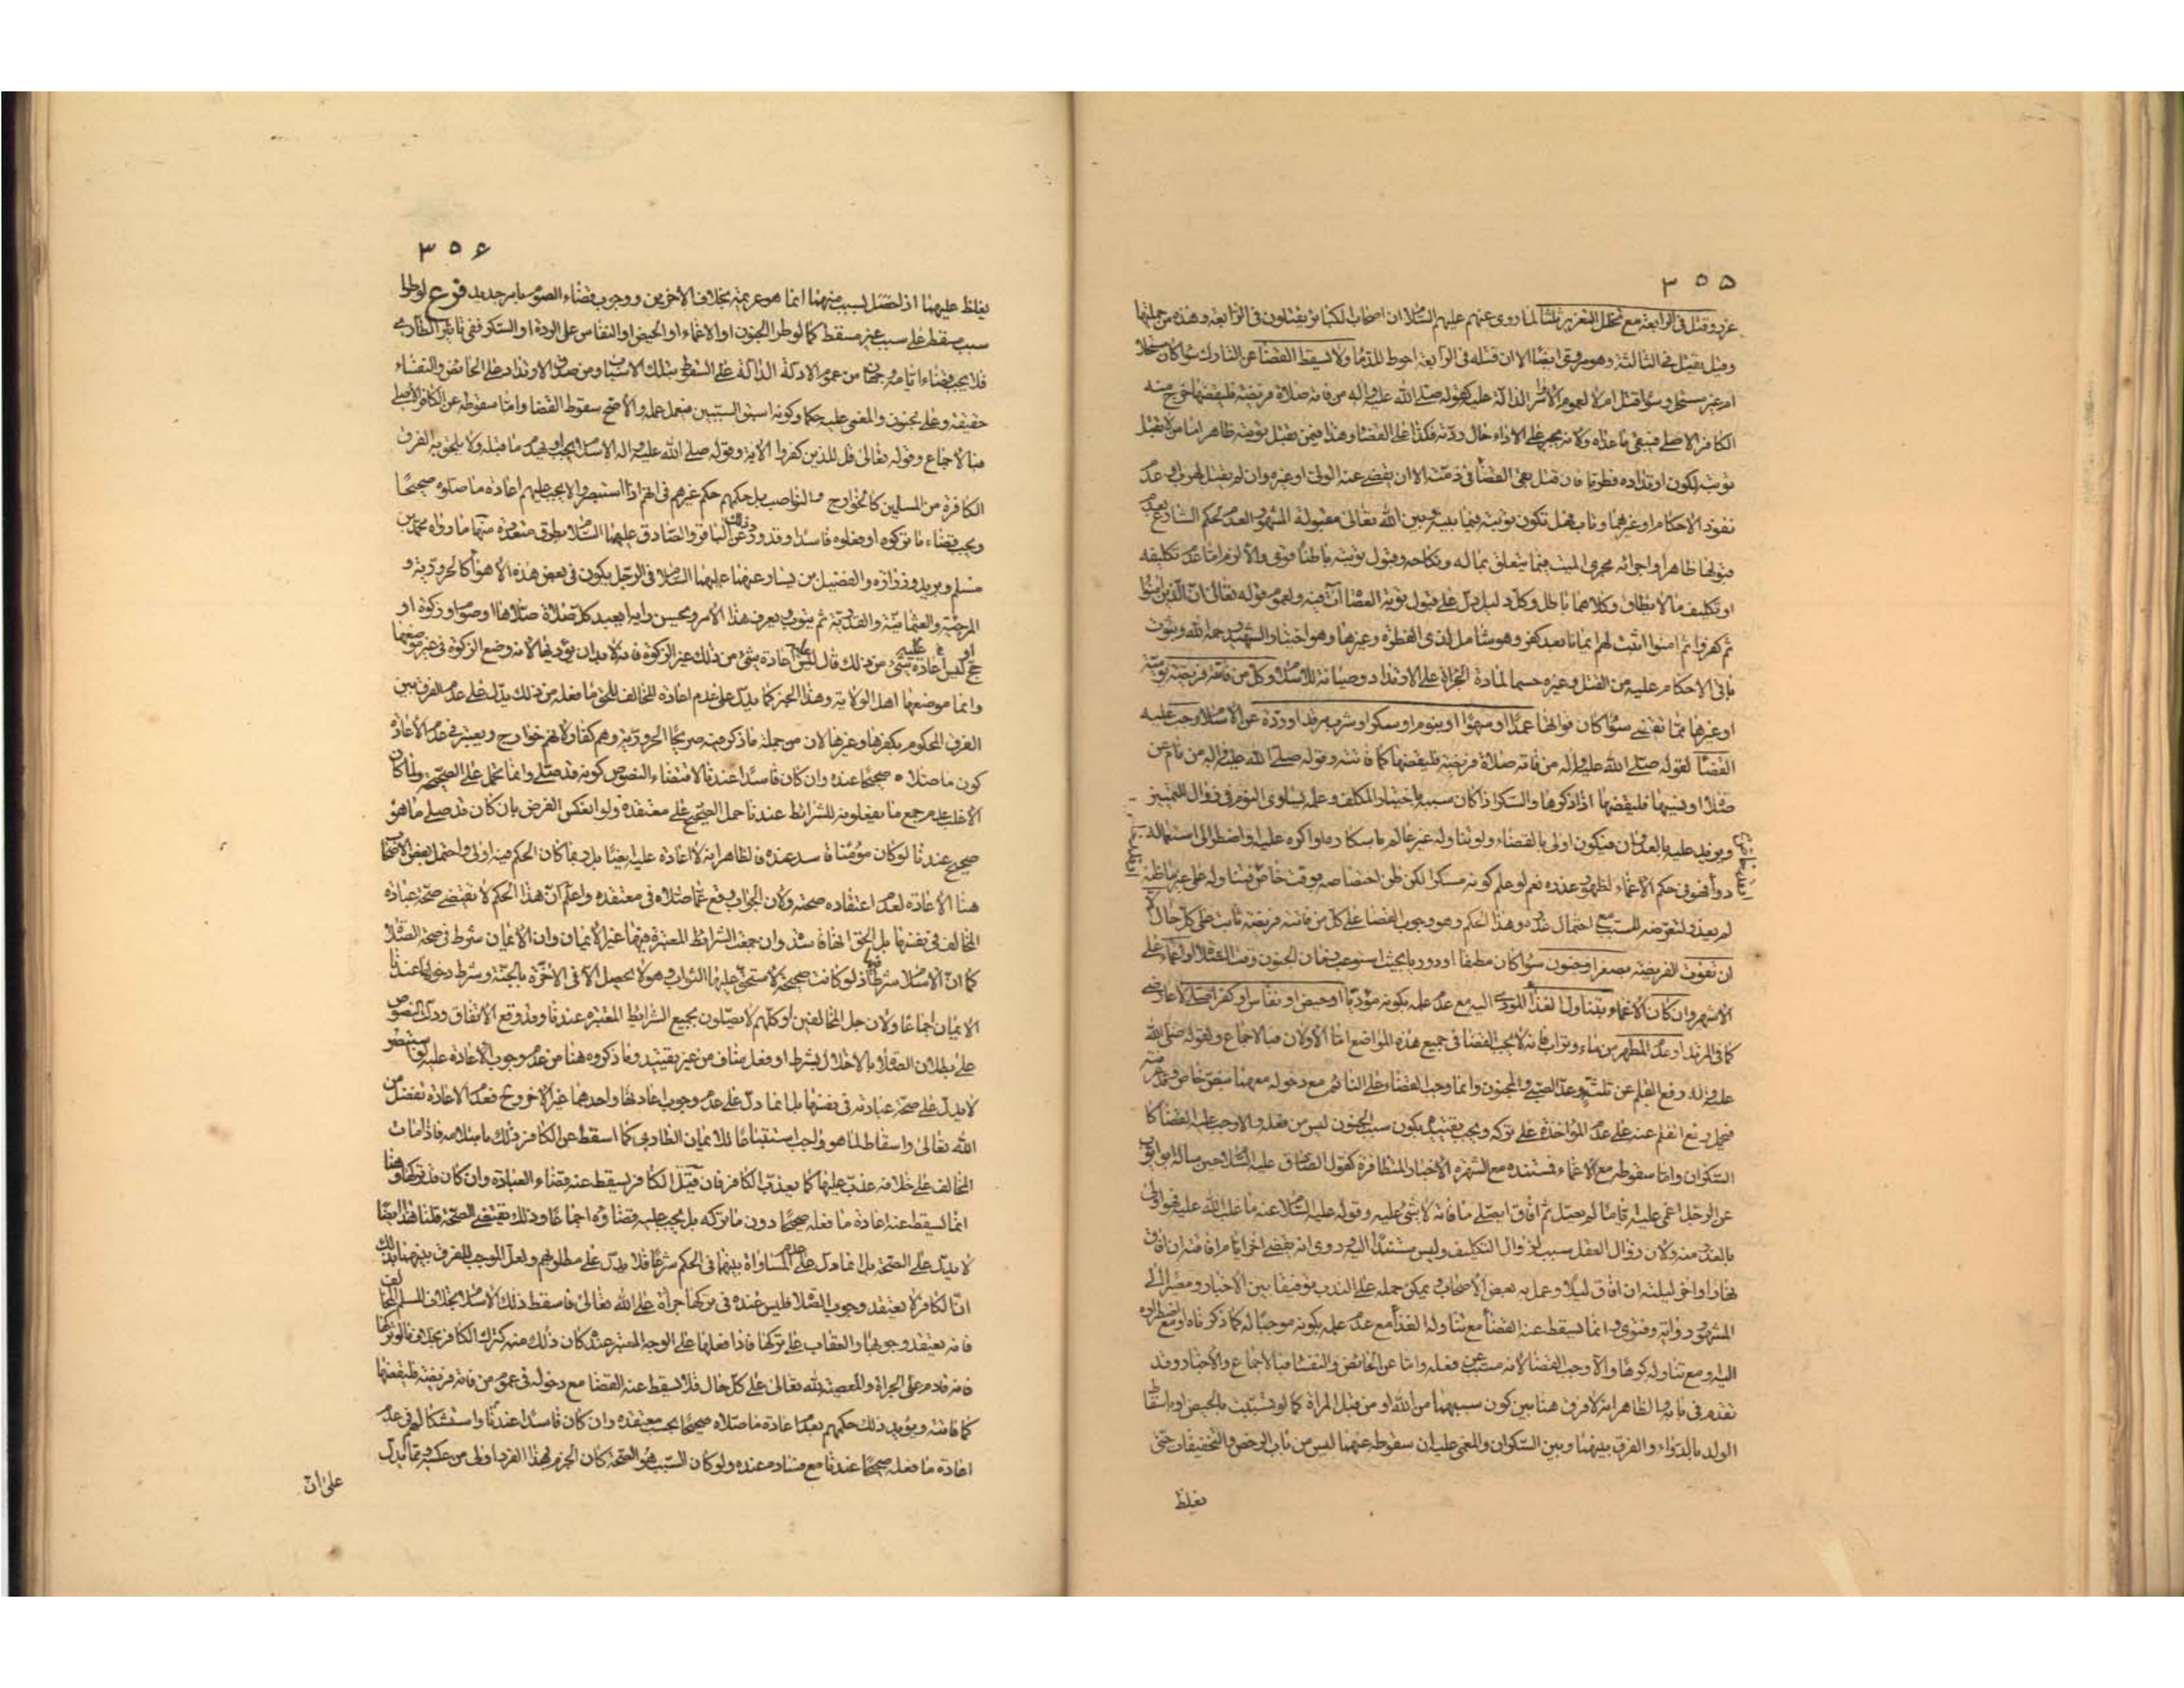 ٣٥٥
عزر وقتل في الرابعة مع تخلل التعزير ثلثا لما روى عنهم عليهم السلام ان اصحاب الكبائر يقتلون في الرابعة وهذه من جملتها
وقيل يقتل في الثالثة وهو مروى ايضا الا ان قتله في الرابعة احوط للدماء ولا يسقط القضا عن التارك سواء كان مستحلا
ام غير مستحل وسواء قتل ام لا لعموم الاوامر الدالة عليه كقوله صلى الله عليه واله من فاتته صلاة فريضة فليقضها خرج منه
الكافر الاصلي فيبقى ما عداه ولانه يجبر على الاداء حال ردته فكذا على القضاء وهذا فيمن تقبل توبته ظاهر اما من لا تقبل
توبته لكون ارتداده فطريا فان قتل بقي القضا في ذمته الا ان يقضى عنه الولى او غيره وان لم يقتل لهرب او عدم
نفوذ الاحكام او غيرهما وتاب فهل تكون توبته فيما بينه وبين الله تعالى مقبولة المشهور العدم لحكم الشارع بعدم
قبولها ظاهرا واجرائه مجرى الميت فيما يتعلق بماله ونكاحه وقبول توبته باطنا قوى والا لزم اما عدم تكليفه
او تكليف ما لا يطاق وكلاهما باطل وكل دليل دل على قبول توبة العصاة آت فيه ولعموم قوله تعالى ان الذين امنوا
ثم كفروا ثم امنوا اثبت لهم ايمانا بعد كفر وهو شامل لذي الفطرة وغيرها وهو اختيار الشهيد رحمه الله وثبوت
باقى الاحكام عليه من القتل وغيره حسما لمادة الجراة على الارتداد وصيانة للاسلام وكل من فاتته فريضة يومية
او غيرها مما تقضى سواء كان فواتها عمدا او سهوا او بنوم او سكر او شرب مرقد او ردة عن الاسلام وجب عليه
القضا لقوله صلى الله عليه واله من فاتته صلاة فريضة فليقضها كما فاتته وقوله صلى الله عليه واله من نام عن
صلاة او نسيها فليقضها اذا ذكرها والسكر اذا كان سببه باختيار المكلف وعلمه يساوى النوم في زوال التمييز
ويزيد عليه بالعدوان فيكون اولى بالقضاء ولو تناوله غير عالم باسكاره او اكره عليه او اضطر الى استعماله
دواء فهو في حكم الاغماء لظهور عذره نعم لو علم كونه مسكرا لكن ظن اختصاصه بوقت خاص فتناوله على غير ما ظنه
لم يعذر لتعرضه للسبب مع احتمال عذره وهذا الحكم وهو وجوب القضا على كل من فاتته فريضة ثابت على كل حال الا
ان تفوت الفريضة بصغر او جنون سواء كان مطبقا او دوريا بحيث استوعب زمان الجنون وقت الصلاة او اغماء على
الاشهر وان كان الاغماء بتناول الغذاء المؤدى اليه مع عدم علمه بكونه مؤديا او حيض او نفاس او كفر اصلي لا عارضي
كما في المرتد او عدم المطهر من ماء وتراب فانه لا يجب القضا في جميع هذه المواضع اما الاولان فبالاجماع ولقوله صلى الله
عليه واله رفع القلم عن ثلثة وعد الصبي والمجنون وانما وجب القضاء على النائم مع دخوله معهما بنص خاص
فيحمل رفع القلم عنه على عدم المؤاخذة على تركه ويجب تقييده بكون سبب الجنون ليس من فعله والا وجب عليه القضا كما
السكران واما سقوطه مع الاغماء فمستنده مع الشهرة الاخبار المتظافرة كقول الصادق عليه السلام حين ساله ابو ايوب
عن الرجل اغمى عليه اياما لم يصل ثم افاق ايصلى ما فاته لا شئ عليه وقوله عليه السلام عنه ما غلب الله عليه فهو اولى
بالعذر منه ولان زوال العقل سبب لزوال التكليف وليس مستندا اليه وروى انه يقضى اخر ايام افاقته ان افاق
نهارا او اخر ليلته ان افاق ليلا وعمل به بعض الاصحاب ويمكن حمله على الندب توفيقا بين الاخبار ومصيرا الى
المشهور رواية وفتوى وانما يسقط عنه القضا مع تناوله الغذاء مع عدم علمه بكونه موجبا له كما ذكرناه او مع اضطراره
اليه ومع تناوله كرها والا وجب القضا لانه مسبب عن فعله واما عن الحائض والنفساء فبالاجماع والاخبار وقد
تقدم في بابه والظاهر انه لا فرق هنا بين كون سببهما من الله او من قبل المراة كما لو تسببت بالحيض او باسقاط
الولد بالدواء والفرق بينهما وبين السكران والمغمى عليه ان سقوطه عنهما ليس من باب الرخص والتخفيفات حتى
تغلظ
٣٥٦
تغلظ عليهما اذ لحصل لسبب منهما انما هو عزيمة بخلاف الاخرين ووجوب قضاء الصوم بامر جديد فرع لو طرا
سبب مسقط على سبب غير مسقط كما لو طرا الجنون او الاغماء او الحيض او النفاس على الردة او السكر ففي تاثير الطارى
فلا يجب قضاء ايامه وجهان من عموم الادلة الدالة على السقوط بتلك الاسباب ومن صدق الارتداد على الحائض والنفساء
حقيقة وعلى المجنون والمغمى عليه حكما وكونه اسبق السببين فيعمل عمله والاصح سقوط القضا واما سقوطه عن الكافر الاصلي
فبالاجماع وقوله تعالى قل للذين كفروا الاية وقوله صلى الله عليه واله الاسلام يجب ويهدم ما قبله ولا يلحق به الفرق
الكافرة من المسلمين كالخوارج والنواصب بل حكمهم حكم غيرهم في انهم اذا استبصروا لا يجب عليهم اعادة ما صلوه صحيحا
ويجب قضاء ما تركوه او فعلوه فاسدا وقد ورد ذلك عن الباقر والصادق عليهما السلام بطرق متعددة منها ما رواه محمد بن
مسلم وبريد وزرارة والفضيل بن يسار عنهما عليهما السلام في الرجل يكون في بعض هذه الاهواء كالحرورية و
المرجئة والعثمانية والقدرية ثم يتوب ويعرف هذا الامر ويحسن رايه ايعيد كل صلاة صلاها او صوم او زكوة او
حج او ليس عليه اعادة شئ من ذلك قال ليس عليه اعادة شئ من ذلك غير الزكوة فانه لا بد ان يؤديها لانه وضع الزكوة في غير موضعها
وانما موضعها اهل الولاية وهذا الخبر كما يدل على عدم اعادة المخالف المحق ما فعله من ذلك يدل على عدم الفرق بين
الفرق المحكوم بكفرها وغيرها لان من جملة ما ذكر فيه صريحا الحرورية وهم كفار لانهم خوارج ويعتبر في عدم الاعادة
كون ما صلاه صحيحا عنده وان كان فاسدا عندنا لاقتضاء النصوص كونه قد صلى وانما يحمل على الصحيحة ولما كان
الاغلب عدم جمع ما يفعلونه للشرائط عندنا حمل الصحيح على معتقده ولو انعكس الفرض بان كان قد صلى ما هو
صحيح عندنا لو كان مؤمنا فاسد عنده فالظاهر انه لا اعادة عليه ايضا بل ربما كان الحكم فيه اولى واحتمل بعض الاصحاب
هنا الاعادة لعدم اعتقاده صحته ولان الجواب وقع عما صلاه في معتقده واعلم ان هذا الحكم لا يقتضي صحة عبادة
المخالف في نفسها بل الحق انها فاسدة وان جمعت الشرائط المعتبرة فيها غير الايمان وان الايمان شرط في صحة الصلاة
كما ان الاسلام شرط فيها اذ لو كانت صحيحة لاستحق عليها الثواب وهو لا يحصل الا في الاخرة بالجنة وشرط دخولها عندنا
الايمان اجماعا ولان جل المخالفين او كلهم لا يصلون بجميع الشرائط المعتبرة عندنا وقد وقع الاتفاق ودل النصوص
على بطلان الصلاة بالاخلال بشرط او فعل مناف من غير تقييد وما ذكروه هنا من عدم وجوب الاعادة عليه لو استبصر
لا يدل على صحة عبادته في نفسها بل انما دل على عدم وجوب اعادتها واحدهما غير الاخر وح فعدم الاعادة تفضل من
الله تعالى واسقاط لما هو واجب استتباعا للايمان الطارى كما اسقط عن الكافر ذلك باسلامه فاذا مات
المخالف على خلافه عذب عليها كما يعذب الكافر فان قيل الكافر يسقط عنه قضاء العبادة وان كان قد تركها وهنا
انما يسقط عنه اعادة ما فعله صحيحا دون ما تركه بل يجب عليه قضاؤه اجماعا وذلك يقتضى الصحة قلنا هذا ايضا
لا يدل على الصحة بل انما دل على عدم المساواة بينهما في الحكم شرعا فلا يدل على مطلوبهم ولعل الموجب للفرق بينهما بذلك
ان الكافر لا يعتقد وجوب الصلاة فليس عنده في تركها جراة على الله تعالى فاسقط ذلك الاسلام بخلاف المسلم المخالف
فانه يعتقد وجوبها والعقاب على تركها فاذا فعلها على الوجه المعتبر عنده كان ذلك منه كترك الكافر بخلاف ما لو تركها
فانه قادم على الجراة والمعصية لله تعالى على كل حال فلا يسقط عنه القضا مع دخوله في عموم من فاتته فريضة فليقضها
كما فاتته ويؤيد ذلك حكمهم بعدم اعادة ما صلاه صحيحا بحسب معتقده وان كان فاسدا عندنا واستشكالهم في عدم
اعادة ما فعله صحيحا عندنا مع فساده عنده ولو كان السبب هو الصحة كان الجزم بهذا الفرد اولى من عكسه ومما يدل
على ان